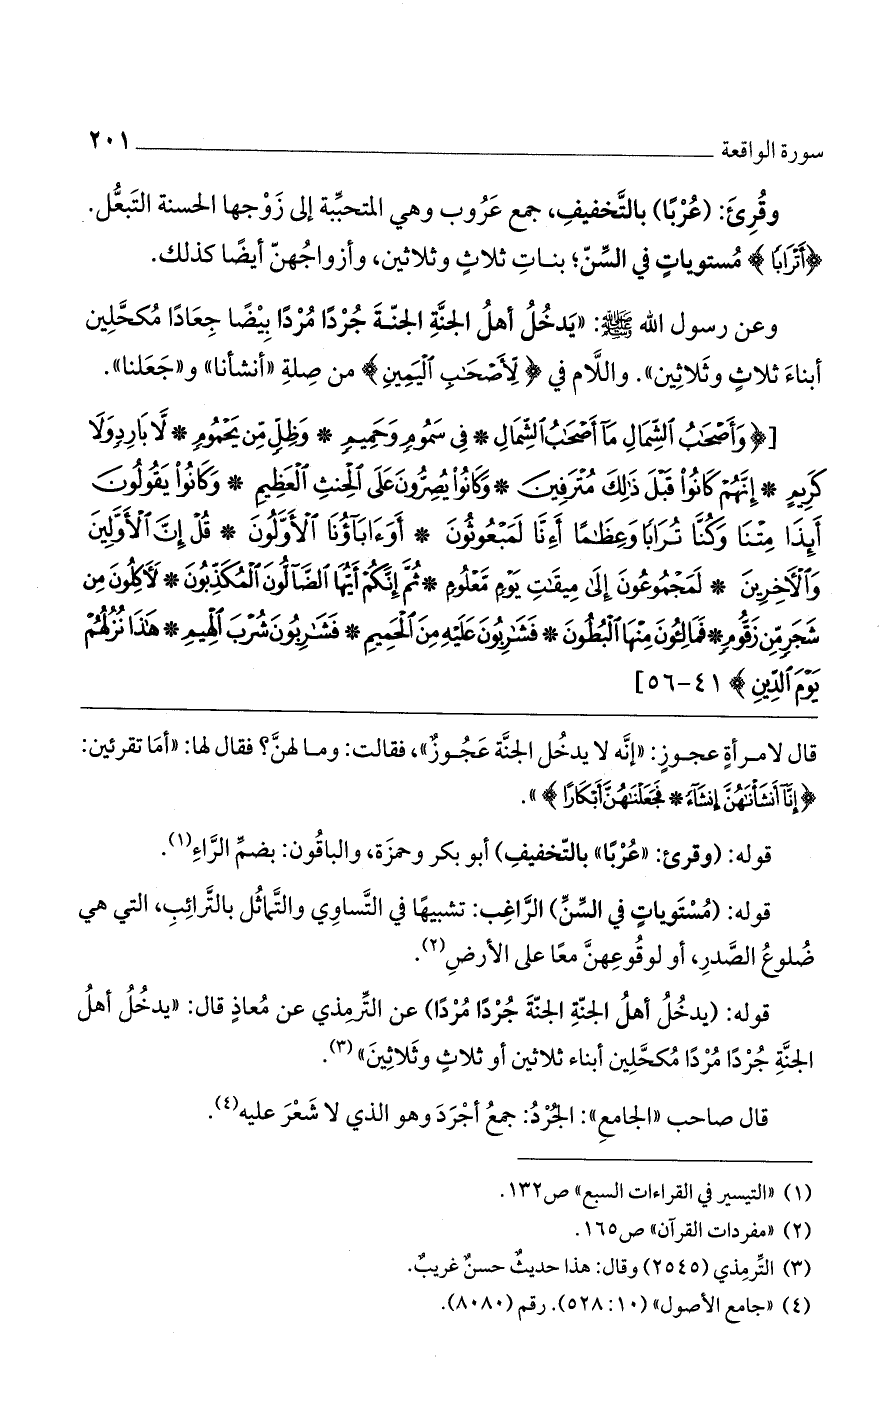 سورة الواقعة ٢٠١
وقُرِئَ: (عُرْبًا) بالتَّخفيفِ، جمع عَرُوب وهي المتحبِّبة إلى زَوْجها الحسنة التَبعُّل.
﴿أَتْرَابًا﴾ مُستوياتٍ في السِّنّ؛ بنـاتِ ثلاثٍ وثلاثين، وأزواجُهنّ أيضًا كذلك.
وعن رسول الله ﷺ: «يَدخُلُ أهلُ الجنَّةِ الجنّـةَ جُرْدًا مُرْدًا بِيْضًا جِعَادًا مُكحَّلين
أبناءَ ثلاثٍ وثَلاثِين». واللَّام في ﴿لِّأَصْحَٰبِ ٱلْيَمِينِ﴾ من صِلةِ «أنشأنا» و«جَعَلنا».
[﴿وَأَصْحَٰبُ ٱلشِّمَالِ مَآ أَصْحَٰبُ ٱلشِّمَالِ * فِى سَمُومٍ وَحَمِيمٍ * وَظِلٍّ مِّن يَحْمُومٍ * لَّا بَارِدٍ وَلَا
كَرِيمٍ * إِنَّهُمْ كَانُوا۟ قَبْلَ ذَٰلِكَ مُتْرَفِينَ * وَكَانُوا۟ يُصِرُّونَ عَلَى ٱلْحِنثِ ٱلْعَظِيمِ * وَكَانُوا۟ يَقُولُونَ
أَئِذَا مِتْنَا وَكُنَّا تُرَابًا وَعِظَٰمًا أَءِنَّا لَمَبْعُوثُونَ * أَوَءَابَآؤُنَا ٱلْأَوَّلُونَ * قُلْ إِنَّ ٱلْأَوَّلِينَ
وَٱلْأَخِرِينَ * لَمَجْمُوعُونَ إِلَىٰ مِيقَٰتِ يَوْمٍ مَّعْلُومٍ * ثُمَّ إِنَّكُمْ أَيُّهَا ٱلضَّآلُّونَ ٱلْمُكَذِّبُونَ * لَأَكِلُونَ مِن
شَجَرٍ مِّن زَقُّومٍ * فَمَالِئُونَ مِنْهَا ٱلْبُطُونَ * فَشَٰرِبُونَ عَلَيْهِ مِنَ ٱلْحَمِيمِ * فَشَٰرِبُونَ شُرْبَ ٱلْهِيمِ * هَٰذَا نُزُلُهُمْ
يَوْمَ ٱلدِّينِ﴾ ٤١-٥٦]
قال لامـرأةٍ عجـوزٍ: «إنَّه لا يدخُل الجنَّة عَجُـوزٌ»، فقالت: ومـا لهنَّ؟ فقال لها: «أمَا تقرئين:
﴿إِنَّآ أَنشَأْنَٰهُنَّ إِنشَآءً * فَجَعَلْنَٰهُنَّ أَبْكَارًا﴾».
قوله: (وقرئ: «عُرْبًا» بالتّخفيفِ) أبو بكر وحمزَة، والباقُون: بضمِّ الرَّاءِ(١).
قوله: (مُسْتَوياتٍ في السِّنِّ) الرَّاغِب: تشبيهًا في التَّساوِي والتَّماثُل بالتَّرائِبِ، التي هي
ضُلوعُ الصَّدرِ، أو لوقُوعِهنَّ معًا على الأرضِ(٢).
قوله: (يدخُلُ أهلُ الجنّةِ الجنّةَ جُرْدًا مُرْدًا) عن التِّرمِذي عن مُعاذٍ قال: «يدخُلُ أهلُ
الجنَّةِ جُرْدًا مُرْدًا مُكحَّلِين أبناء ثلاثين أو ثلاثٍ وثَلاثِينَ»(٣).
قال صاحب «الجامعِ»: الجُرْدُ: جمعُ أجْرَدَ وهو الذي لا شَعْرَ عليه(٤).
(١) «التيسير في القراءات السبع» ص١٣٢.
(٢) «مفردات القرآن» ص١٦٥.
(٣) التِّرمِذي (٢٥٤٥) وقال: هذا حديثٌ حسنٌ غريبٌ.
(٤) «جامع الأصول» (١٠: ٥٢٨). رقم (٨٠٨٠).